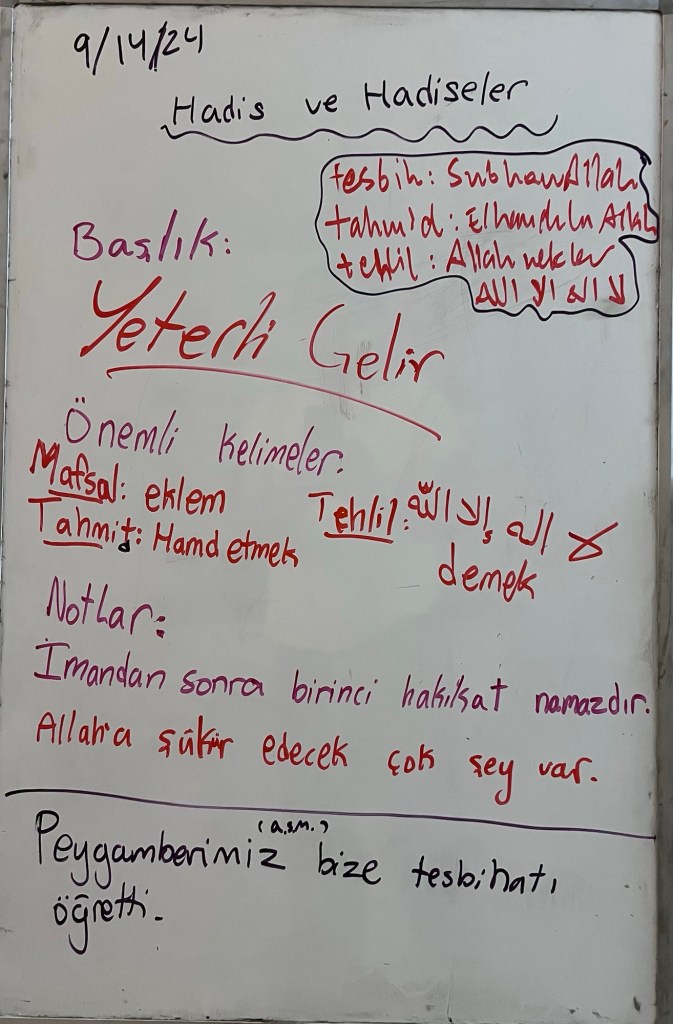 9/14/24
Hadis ve Hadiseler
tesbih: SubhanAllah
tahmid: Elhamdulu Allah
tehlil: Allah
لا اله الا الله
Başlık:
Yeterli Gelir
Önemli kelimeler:
Mafsal: eklem
Tahmit: Hamd etmek
Tehlil: لا اله إلا الله
demek
Notlar:
İmandan sonra birinci hakikat namazdır.
Allah'a şükür edecek çok şey var.
(a.s.m.)
Peygamberimiz bize tesbihatı
öğretti.